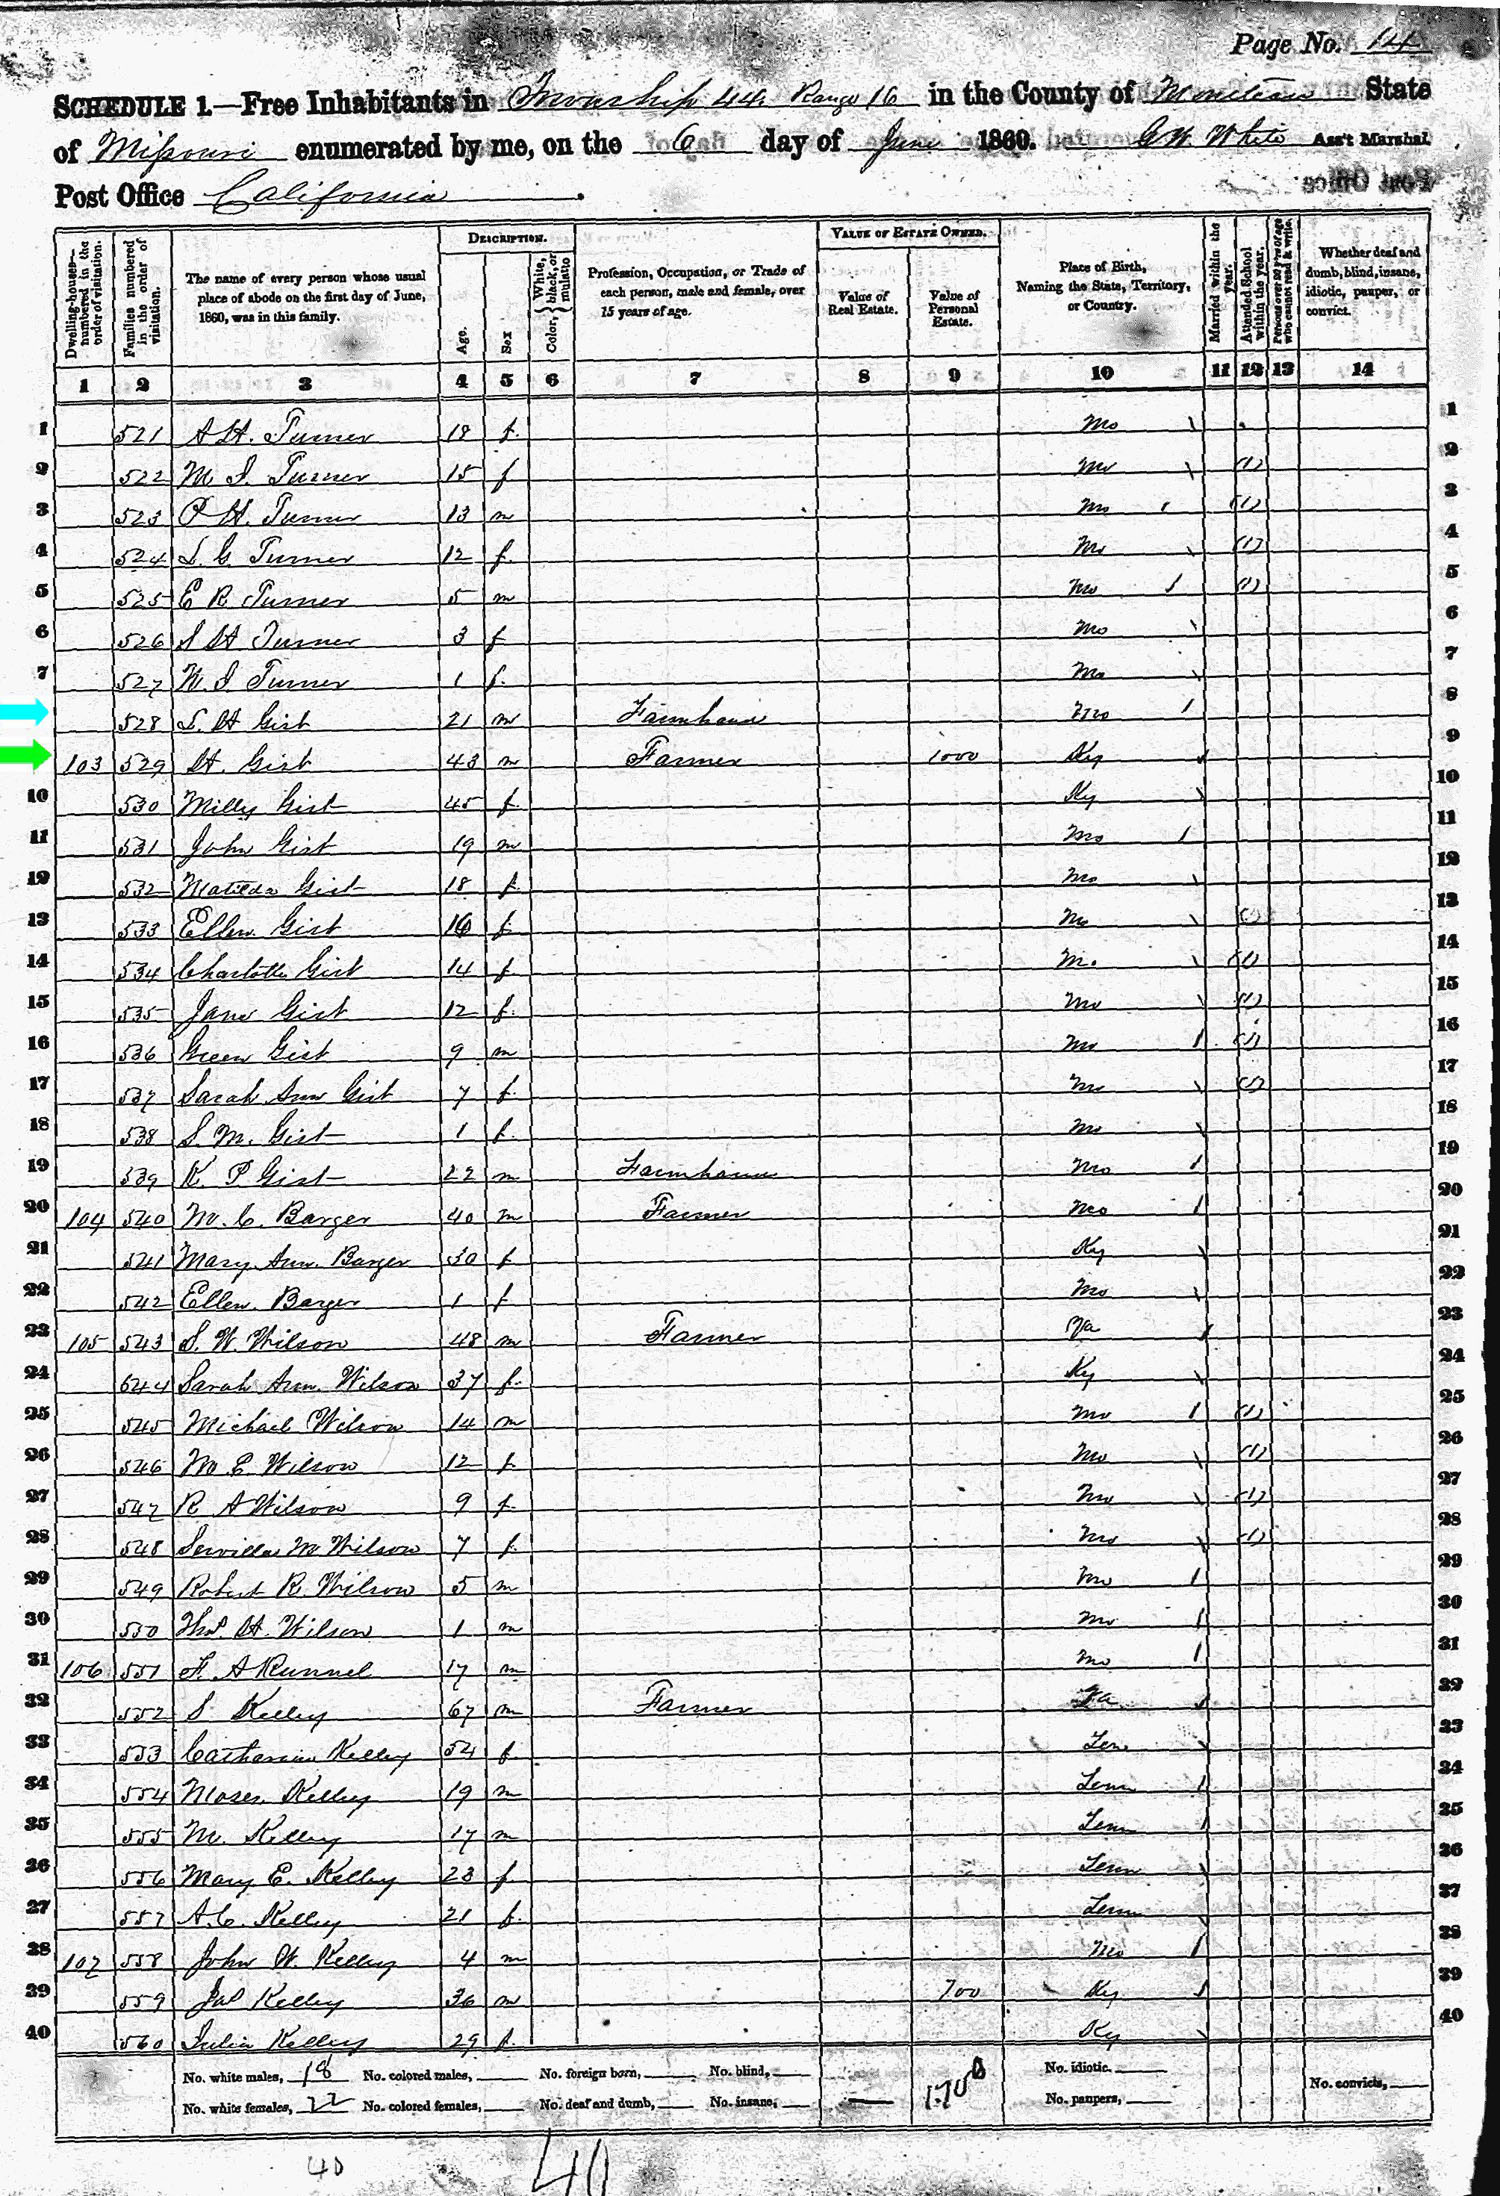 Page No. 14
SCHEDULE 1.—Free Inhabitants in Township 44 Range 16 in the County of Moniteau State
of Missouri enumerated by me, on the 6 day of June 1860. G W White Ass't Marshal
Post Office California.
Dwelling-houses—numbered in the order of visitation.
Families numbered in the order of visitation.
The name of every person whose usual place of abode on the first day of June, 1860, was in this family.
DESCRIPTION.
Age.
Sex
Color, { White, black, or mulatto
Profession, Occupation, or Trade of each person, male and female, over 15 years of age.
VALUE OF ESTATE OWNED.
Value of Real Estate.
Value of Personal Estate.
Place of Birth, Naming the State, Territory, or Country.
Married within the year.
Attended School within the year.
Persons over 20 y'rs of age who cannot read & write.
Whether deaf and dumb, blind, insane, idiotic, pauper, or convict.
1 2 3 4 5 6 7 8 9 10 11 12 13 14
1 521 A H. Turner 18 f. Mo 1
2 522 M I. Turner 15 f Mo (1) 2
3 523 P H. Turner 13 m Mo (1) 3
4 524 L G Turner 12 f. Mo (1) 4
5 525 E R Turner 5 m Mo (1) 5
6 526 S H Turner 3 f Mo 6
7 527 W. I. Turner 1 f. Mo 7
528 L. H Gist 21 m Farmhand Mo 8
103 529 H. Gist 43 m Farmer 1000 Ky 9
10 530 Milly Gist 45 f. Ky 10
11 531 John Gist 19 m Mo 11
12 532 Matilda Gist 18 f. Mo 12
13 533 Ellen Gist 16 f. Mo (1) 13
14 534 Charlotte Gist 14 f Mo (1) 14
15 535 Jane Gist 12 f. Mo (1) 15
16 536 Green Gist 9 m Mo (1) 16
17 537 Sarah Ann Gist 7 f. Mo (1) 17
18 538 S. M. Gist 1 f. Mo 18
19 539 K P Gist 22 m Farmhand Mo 19
20 104 540 M. C. Barger 40 m Farmer Mo 20
21 541 Mary Ann. Barger 30 f Ky 21
22 542 Ellen. Barger 1 f Mo 22
23 105 543 S. W. Wilson 48 m Farmer Va 23
24 544 Sarah Ann. Wilson 37 f. Ky 24
25 545 Michael Wilson 14 m Mo (1) 25
26 546 M E Wilson 12 f. Mo (1) 26
27 547 R A Wilson 9 f. Mo (1) 27
28 548 M Wilson 7 f. Mo (1) 28
29 549 Robert R. Wilson 5 m Mo 29
30 550 Thos. H. Wilson 1 m Mo 30
31 106 551 F. A Runnel 17 m Mo 31
32 552 S Kelley 67 m Farmer Va 32
33 553 Catharine Kelley 54 f. Ten. 33
34 554 Moses. Kelley 19 m Tenn 34
35 555 M. Kelley 17 m Tenn 35
36 556 Mary E. Kelley 23 f Tenn 36
37 557 A. C. Kelley 21 f. Tenn 37
38 107 558 John W. Kelley 4 m Mo 38
39 559 Jas Kelley 36 m 700 Ky 39
40 560 Julia Kelley 29 f. Ky 40
No. white males, 18 No. colored males, No. foreign born, No. blind, No. idiotic.
No. white females, 22 No. colored females, No. deaf and dumb, No. insane, — 1700 No. paupers, No. convicts,
40 40